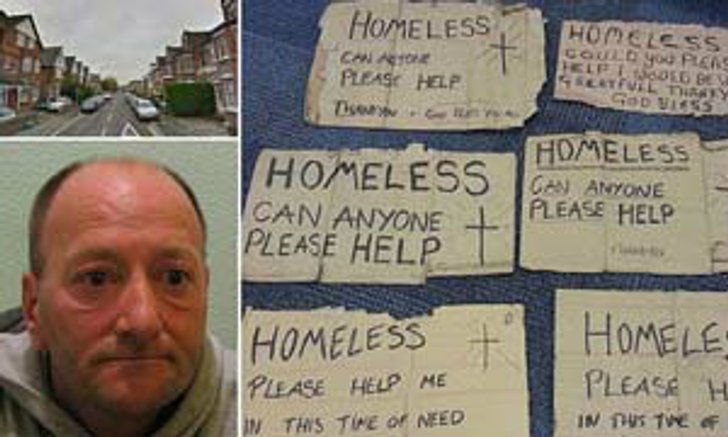 HOMELESS
CAN ANYONE
PLEASE HELP
THANKYOU + GOD BLESS
HOMELESS
COULD YOU PLEAS
HELP I WOULD BE
GREATFULL THANKYO
GOD BLESS
HOMELESS
CAN ANYONE
PLEASE HELP
HOMELESS
CAN ANYONE
PLEASE HELP
HOMELESS
PLEASE HELP ME
IN THIS TIME OF NEED
HOMELE
PLEASE H
IN THIS TIME OF